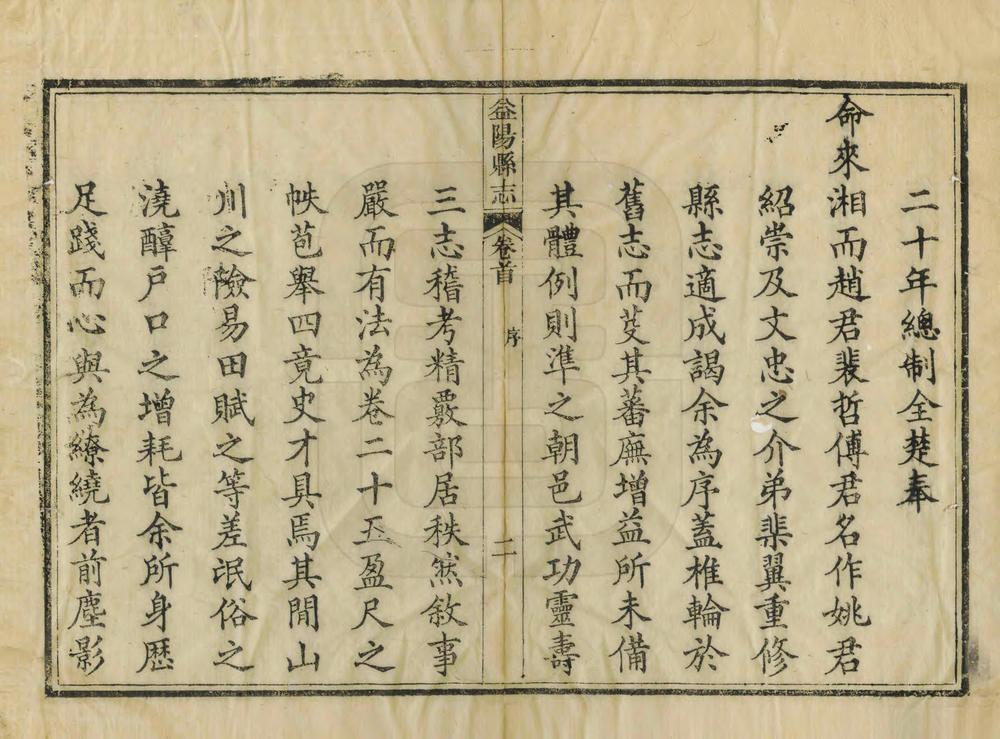 二十年總制全楚奉
命來湘而趙君裴哲傅君名作姚君
紹崇及文忠之介弟棐翼重修
縣志適成謁余為序蓋椎輪於
舊志而芟其蕃廡增益所未備
其體例則準之朝邑武功靈壽
益陽縣志
卷首
序
二
三志稽考精覈部居秩然敘事
嚴而有法為卷二十五盈尺之
帙苞舉四竟史才具焉其間山
川之險易田賦之等差氓俗之
澆醇戶口之增耗皆余所身歷
足踐而心與為繚繞者前塵影